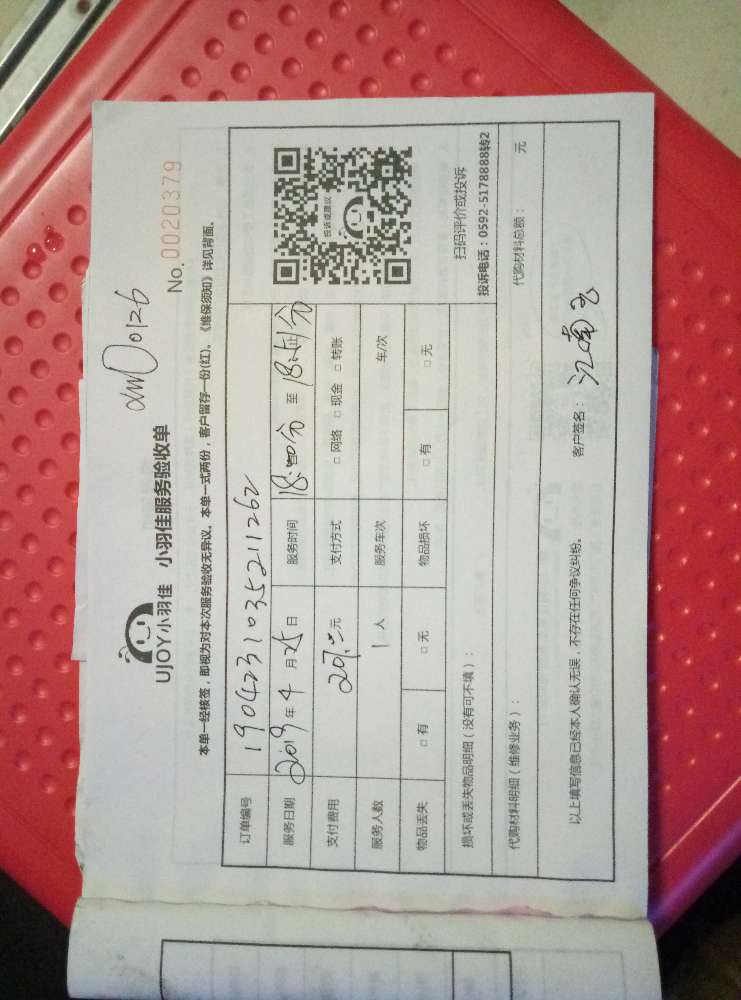 xm00126
UJOY小羽佳 小羽佳服务验收单
No. 0020379
本单一经核签，即视为对本次服务验收无异议。本单一式两份，客户留存一份(红)。《维保须知》详见背面。
订单编号 19042310352112​62
服务日期 2019年4月25日 服务时间 18:00分 至 18:分
支付费用 元 支付方式 □ 网络 □ 现金 □ 转账
服务人数 1 人 服务车次 车/次
物品丢失 □ 有 □ 无 物品损坏 □ 有 □ 无
投诉或建议
扫码评价或投诉
投诉电话：0592-5178888转2
损坏或丢失物品明细（没有可不填）：
代购材料明细（维修业务）： 代购材料总额： 元
以上填写信息已经本人确认无误，不存在任何争议纠纷。 客户签名：